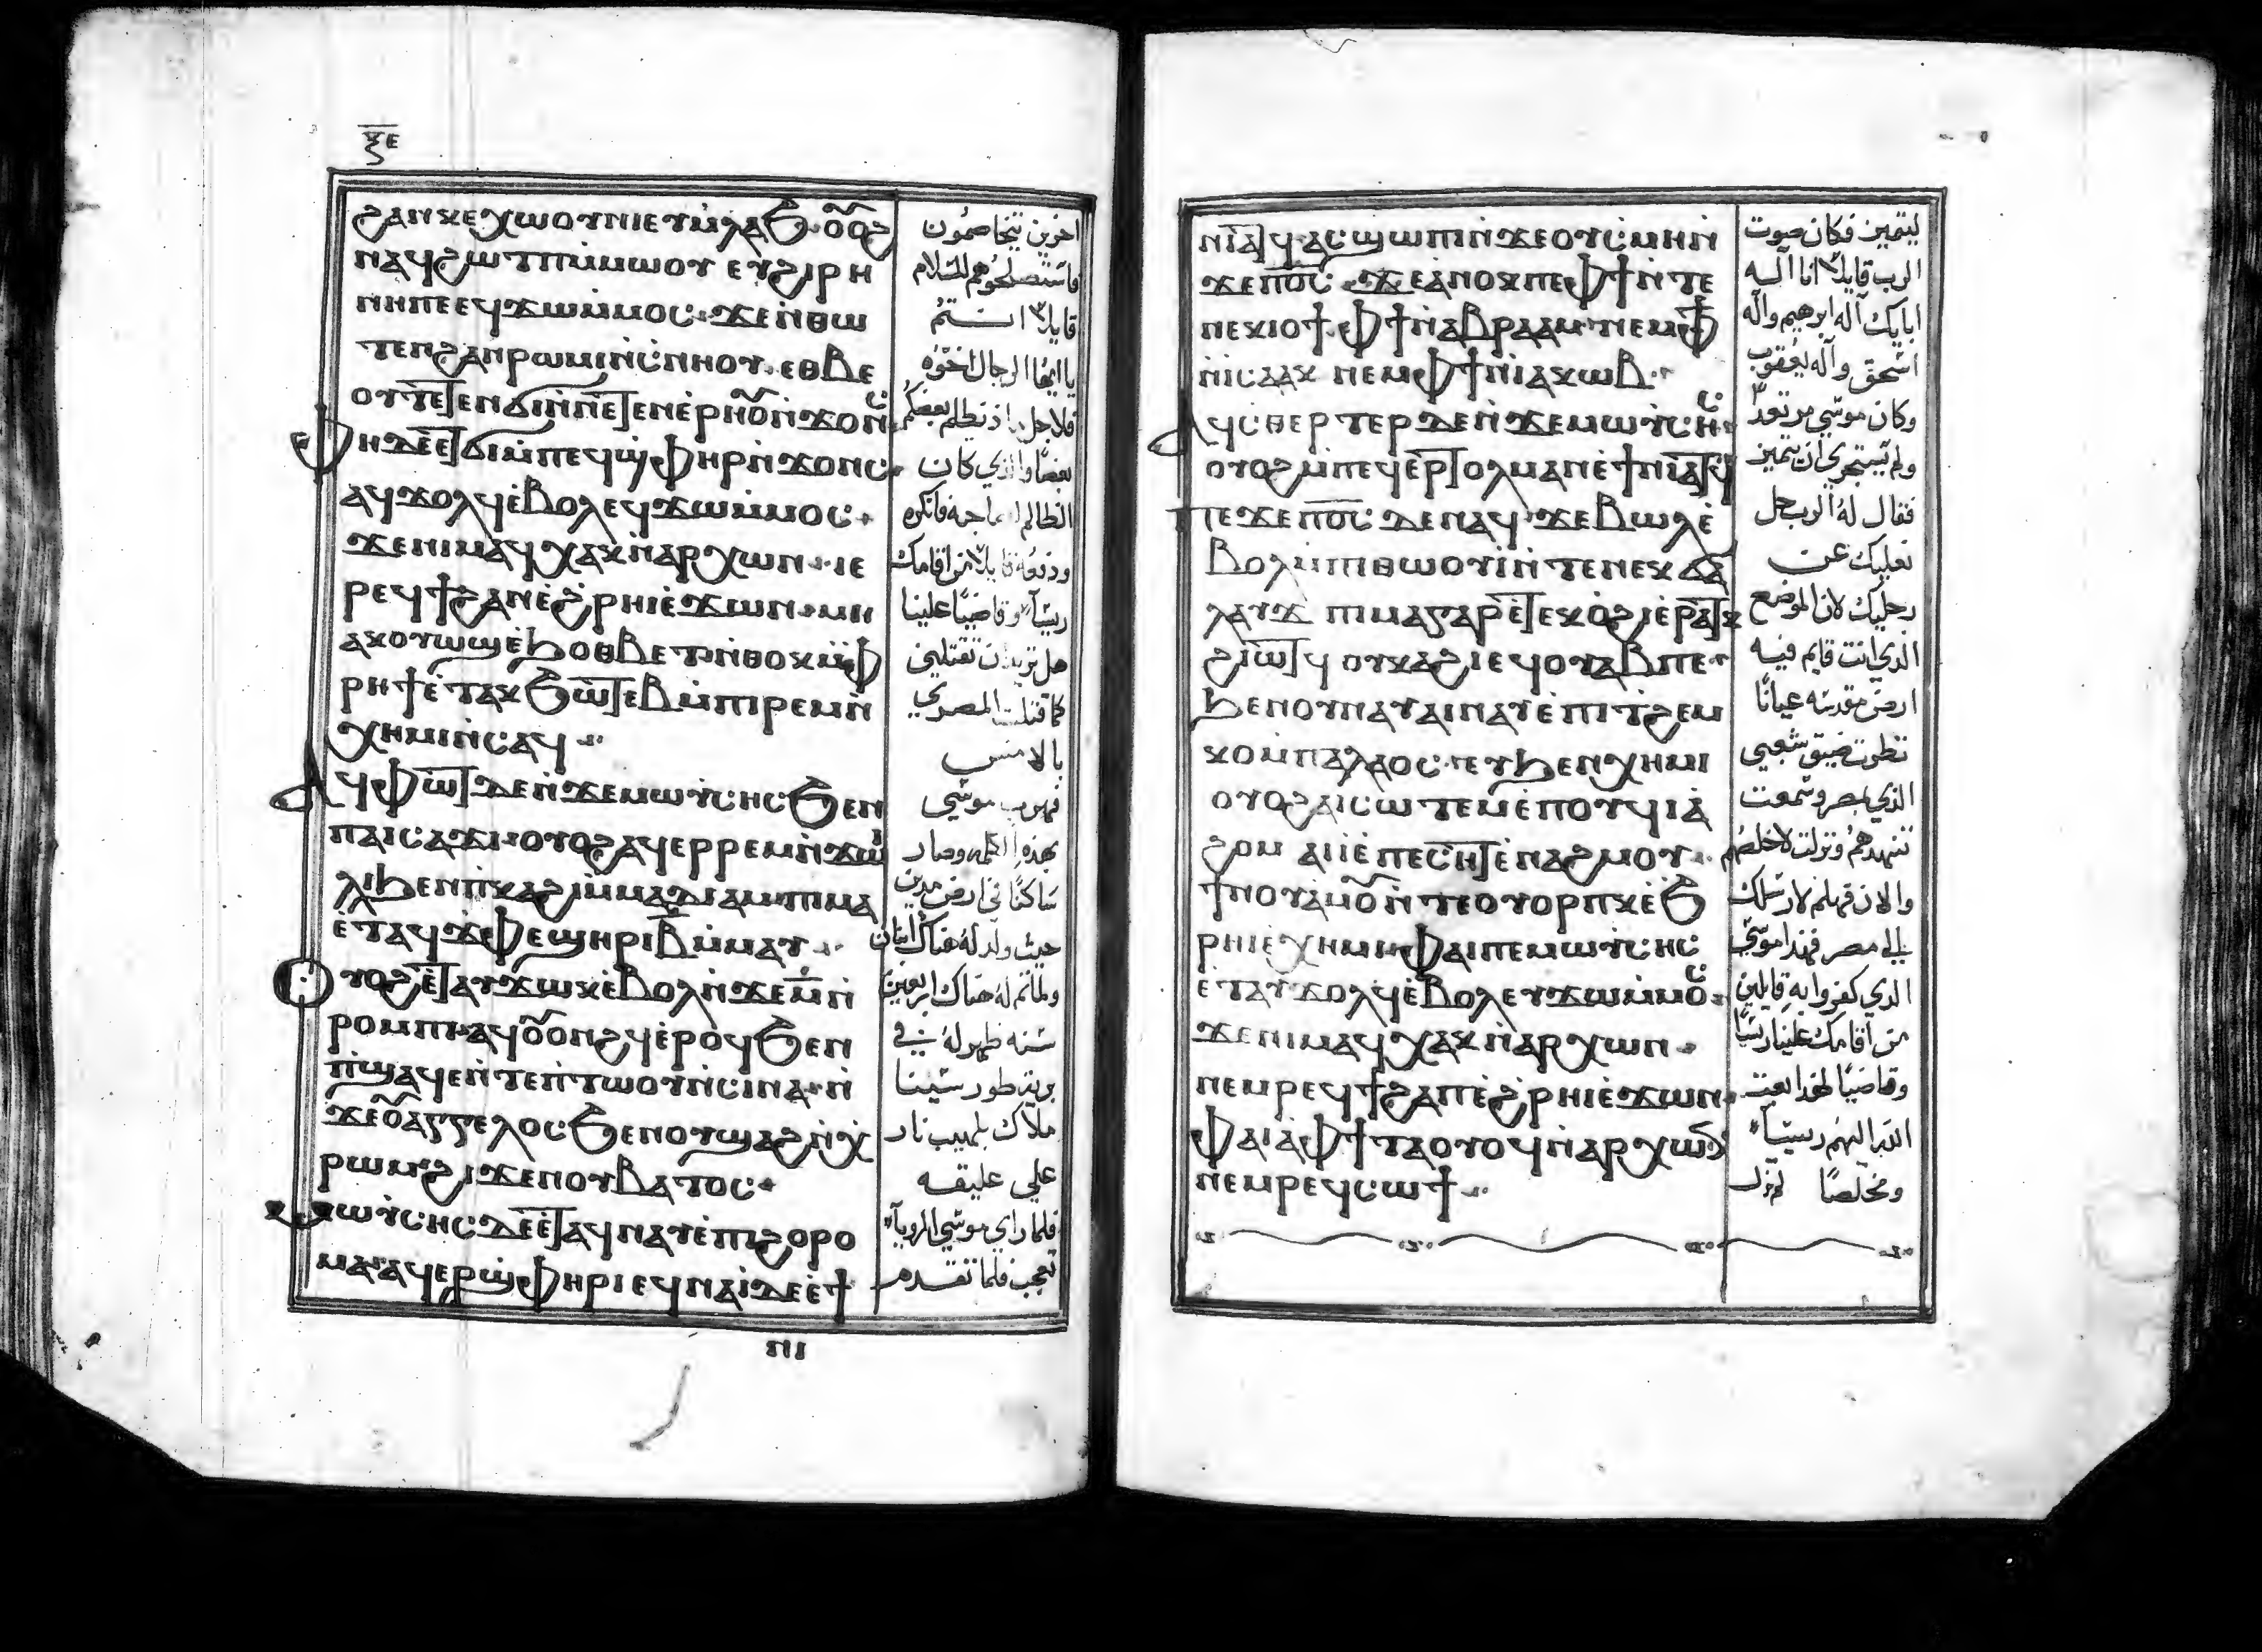 ⲝⲉ
ϩⲁⲛⲕⲉⲭⲱⲟⲩⲛⲓ ⲉⲩⲙ̀ⲗⲁϧ ⲟⲟϩ
ⲛⲁϥϩⲱⲧⲡ ⲙ̀ⲙⲱⲟⲩ ⲉⲩϩⲓⲣⲏ
ⲛⲏⲡⲉ ⲉϥϫⲱⲙ̀ⲙⲟⲥ ϫⲉ ⲛ̀ⲑⲱ
ⲧⲉⲛϩⲁⲛⲣⲱⲙⲓ ⲛ̀ⲥⲛⲏⲟⲩ ⲉⲑⲃⲉ
ⲁϥϫⲟⲗϥ ⲉ̀ⲃⲟⲗ ⲉϥϫⲱⲙ̀ⲙⲟⲥ
ϫⲉ ⲛⲓⲙ ⲁϥⲭⲁⲕ ⲛ̀ⲁⲣⲭⲱⲛ ⲓⲉ
ⲣⲉϥϯϩⲁⲡ ⲉ̀ϩ̀ⲣⲏⲓ ⲉ̀ϫⲱⲛ ⲙⲏ
ⲁⲕⲟⲩⲱϣ ⲉ̀ϧⲟⲑⲃⲉⲧ ⲛ̀ⲑⲟⲕ ⲙ̀ⲫ
ⲣⲏϯ ⲉ̀ⲧⲁⲕϧⲱⲧⲉⲃ ⲙ̀ⲡⲓⲣⲉⲙⲛ̀
ⲭⲏⲙⲓ ⲛ̀ⲥⲁϥ
ⲁϥⲫⲱⲧ ⲇⲉ ⲛ̀ϫⲉ ⲙⲱⲩ̀ⲥⲏⲥ ϧⲉⲛ
ⲡⲁⲓⲥⲁϫⲓ ⲟⲩⲟϩ ⲁϥⲉⲣⲣⲉⲙⲛ̀ϫⲱ
ⲗⲓ ϧⲉⲛ ⲡ̀ⲕⲁϩⲓ ⲙ̀ⲙⲁⲇⲓⲁⲙ ⲡⲓⲙⲁ
ⲉ̀ⲧⲁϥϫⲫⲉ ϣⲏⲣⲓ ⲃ̅ ⲙ̀ⲙⲁⲩ
ⲟⲩⲟϩ ⲉ̀ⲧⲁⲩϫⲱⲕ ⲉ̀ⲃⲟⲗ ⲛ̀ϫⲉ ⲙ̅ ⲛ̀
ⲣⲟⲙⲡⲓ ⲁϥⲟⲟⲛϩϥ ⲉ̀ⲣⲟϥ ϧⲉⲛ
ⲡ̀ϣⲁϥⲉ ⲛ̀ⲧⲉ ⲡ̀ⲧⲱⲟⲩ ⲛ̀ⲥⲓⲛⲁ ⲛ̀
ϫⲉ ⲟⲁⲅⲅⲉⲗⲟⲥ ϧⲉⲛ ⲟⲩϣⲁϩ ⲛ̀ⲭ
ⲣⲱⲙ ϩⲓϫⲉⲛ ⲟⲩⲃⲁⲧⲟⲥ
ⲙⲱⲩ̀ⲥⲏⲥ ⲇⲉ ⲉ̀ⲧⲁϥⲛⲁⲩ ⲉ̀ⲡⲓϩⲟⲣⲟ
ⲙⲁ ⲁϥⲉⲣϣ̀ⲫⲏⲣⲓ ⲉϥⲛⲁⲓ̀ ⲇⲉ ⲉ̀ϯ
ⲛⲓ
اخرين يتخاصمون
فاستصلحوهم للسلام
قايلا انتم
يا ايها الرجال اخوه
بعضا والذي كان
هل تريد ان تقتلني
كما قتلت المصري
بالامس
فهرب موسي
بهذه الكلمه وصار
ساكنا في ارض مدين
حيث ولد له هناك ابنان
ولما تم له هناك اربعين
سنه ظهر له في
برية طور سينا
ملاك بلهيب نار
علي عليقه
فلما راي موسي الرويا
تعجب فلما تقدم
ⲛⲓⲁⲧϥ ⲁⲥϣⲱⲡⲓ ⲛ̀ϫⲉ ⲟⲩⲥ̀ⲙⲏ ⲛ̀
ϫⲉ ⲡⲟⲥ ϫⲉ ⲁ̀ⲛⲟⲕ ⲡⲉ ⲫϯ ⲛ̀ⲧⲉ
ⲛⲉⲕⲓⲟϯ ⲫϯ ⲛ̀ⲁⲃⲣⲁⲁⲙ ⲛⲉⲙ ⲫϯ
ⲛ̀ⲓⲥⲁⲁⲕ ⲛⲉⲙ ⲫϯ ⲛ̀ⲓⲁⲕⲱⲃ
ⲁϥⲥⲑⲉⲣⲧⲉⲣ ⲇⲉ ⲛ̀ϫⲉ ⲙⲱⲩ̀ⲥⲏⲥ
ⲟⲩⲟϩ ⲙ̀ⲡⲉϥⲉⲣⲧⲟⲗⲙⲁⲛ ⲉ̀ϯⲛⲓⲁⲧϥ
ⲡⲉϫⲉ ⲡⲟⲥ ⲇⲉ ⲛⲁϥ ϫⲉ ⲃⲱⲗ ⲉ̀
ⲃⲟⲗ ⲙ̀ⲡⲓⲑⲱⲟⲩⲓ̀ ⲛ̀ⲧⲉ ⲛⲉⲕϭⲁ
ⲗⲁⲩϫ ⲡⲓⲙⲁ ⲅⲁⲣ ⲉ̀ⲧⲉⲕⲟ̀ϩⲓ ⲉ̀ⲣⲁⲧⲕ
ϩⲓⲱⲧϥ ⲟⲩⲕⲁϩⲓ ⲉϥⲟⲩⲁⲃ ⲡⲉ
ϧⲉⲛ ⲟⲩⲛⲁⲩ ⲁⲓⲛⲁⲩ ⲉ̀ⲡⲓⲧϩⲉⲙ
ⲕⲟ ⲙ̀ⲡⲁⲗⲁⲟⲥ ⲉⲧϧⲉⲛ ⲭⲏⲙⲓ
ⲟⲩⲟϩ ⲁⲓⲥⲱⲧⲉⲙ ⲉ̀ⲡⲟⲩϥⲓⲁ̀
ϩⲟⲙ ⲁⲓⲓ̀ ⲉ̀ⲡⲉⲥⲏⲧ ⲉ̀ⲛⲁϩⲙⲟⲩ
ϯⲛⲟⲩ ⲁ̀ⲙⲟⲛ̀ⲧⲉⲟⲩⲟⲣⲡⲕ ⲉ̀ϧ
ⲣⲏⲓ ⲉ̀ⲭⲏⲙⲓ ⲫⲁⲓ ⲡⲉ ⲙⲱⲩ̀ⲥⲏⲥ
ⲉ̀ⲧⲁⲩϫⲟⲗϥ ⲉ̀ⲃⲟⲗ ⲉⲩϫⲱⲙ̀ⲙⲟⲥ
ϫⲉ ⲛⲓⲙ ⲁϥⲭⲁⲕ ⲛ̀ⲁⲣⲭⲱⲛ
ⲛⲉⲙ ⲣⲉϥϯϩⲁⲡ ⲉ̀ϩ̀ⲣⲏⲓ ⲉ̀ϫⲱⲛ
ⲫⲁⲓ ⲁ̀ⲫϯ ⲧⲁⲟⲩⲟϥ ⲛ̀ⲁⲣⲭⲱⲛ
ⲛⲉⲙ ⲣⲉϥⲥⲱϯ
ليتميز فكان صوت
الرب قايلا انا اله
ابايك اله ابرهيم واله
اسحق واله يعقوب
وكان موسي مرتعدا
ولم يستجري ان يتميز
فقال له الرب حل
نعليك عن
رجليك لان الموضع
الذي انت قايم فيه
ارض مقدسه عيانا
نظرت ضيق شعبي
الذي بمصر وسمعت
تنهدهم ونزلت لاخلصهم
والان فهلم لارسلك
الي مصر فهذا موسي
الذي كفروا به قايلين
من اقامك علينا رييسا
وقاضيا لهذا بعث
الله اليهم رييسا
ومخلصا